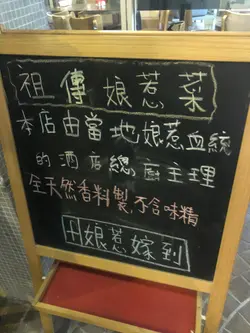 祖傳娘惹菜
本店由當地娘惹血統
的酒店總廚主理
全天然香料製，不含味精
娘惹嫁到